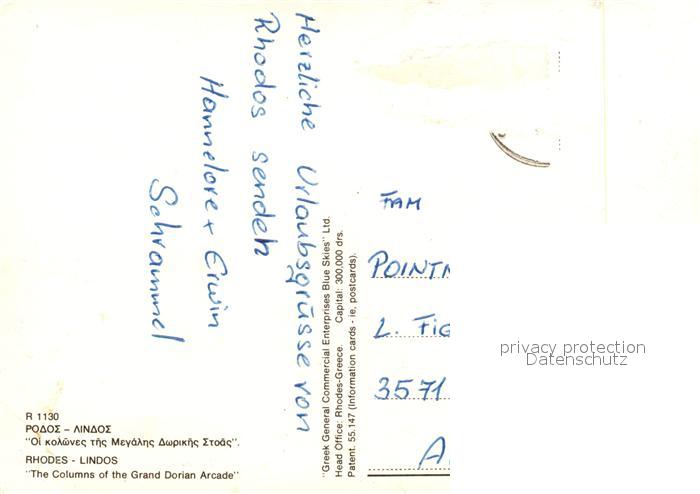 Herzliche Urlaubsgrüsse von
Rhodos senden
Hannelore + Erwin
Schrammel
"Greek General Commercial Enterprises Blue Skies" Ltd.
Head Office: Rhodes-Greece. Capital: 300,000 drs.
Patent. 55.147 (Information cards - ie, postcards).
FAM
L. FIG
3571
privacy protection
Datenschutz
R 1130
ΡΟΔΟΣ – ΛΙΝΔΟΣ
"Οἱ κολῶνες τῆς Μεγάλης Δωρικῆς Στοᾶς".
RHODES - LINDOS
"The Columns of the Grand Dorian Arcade"